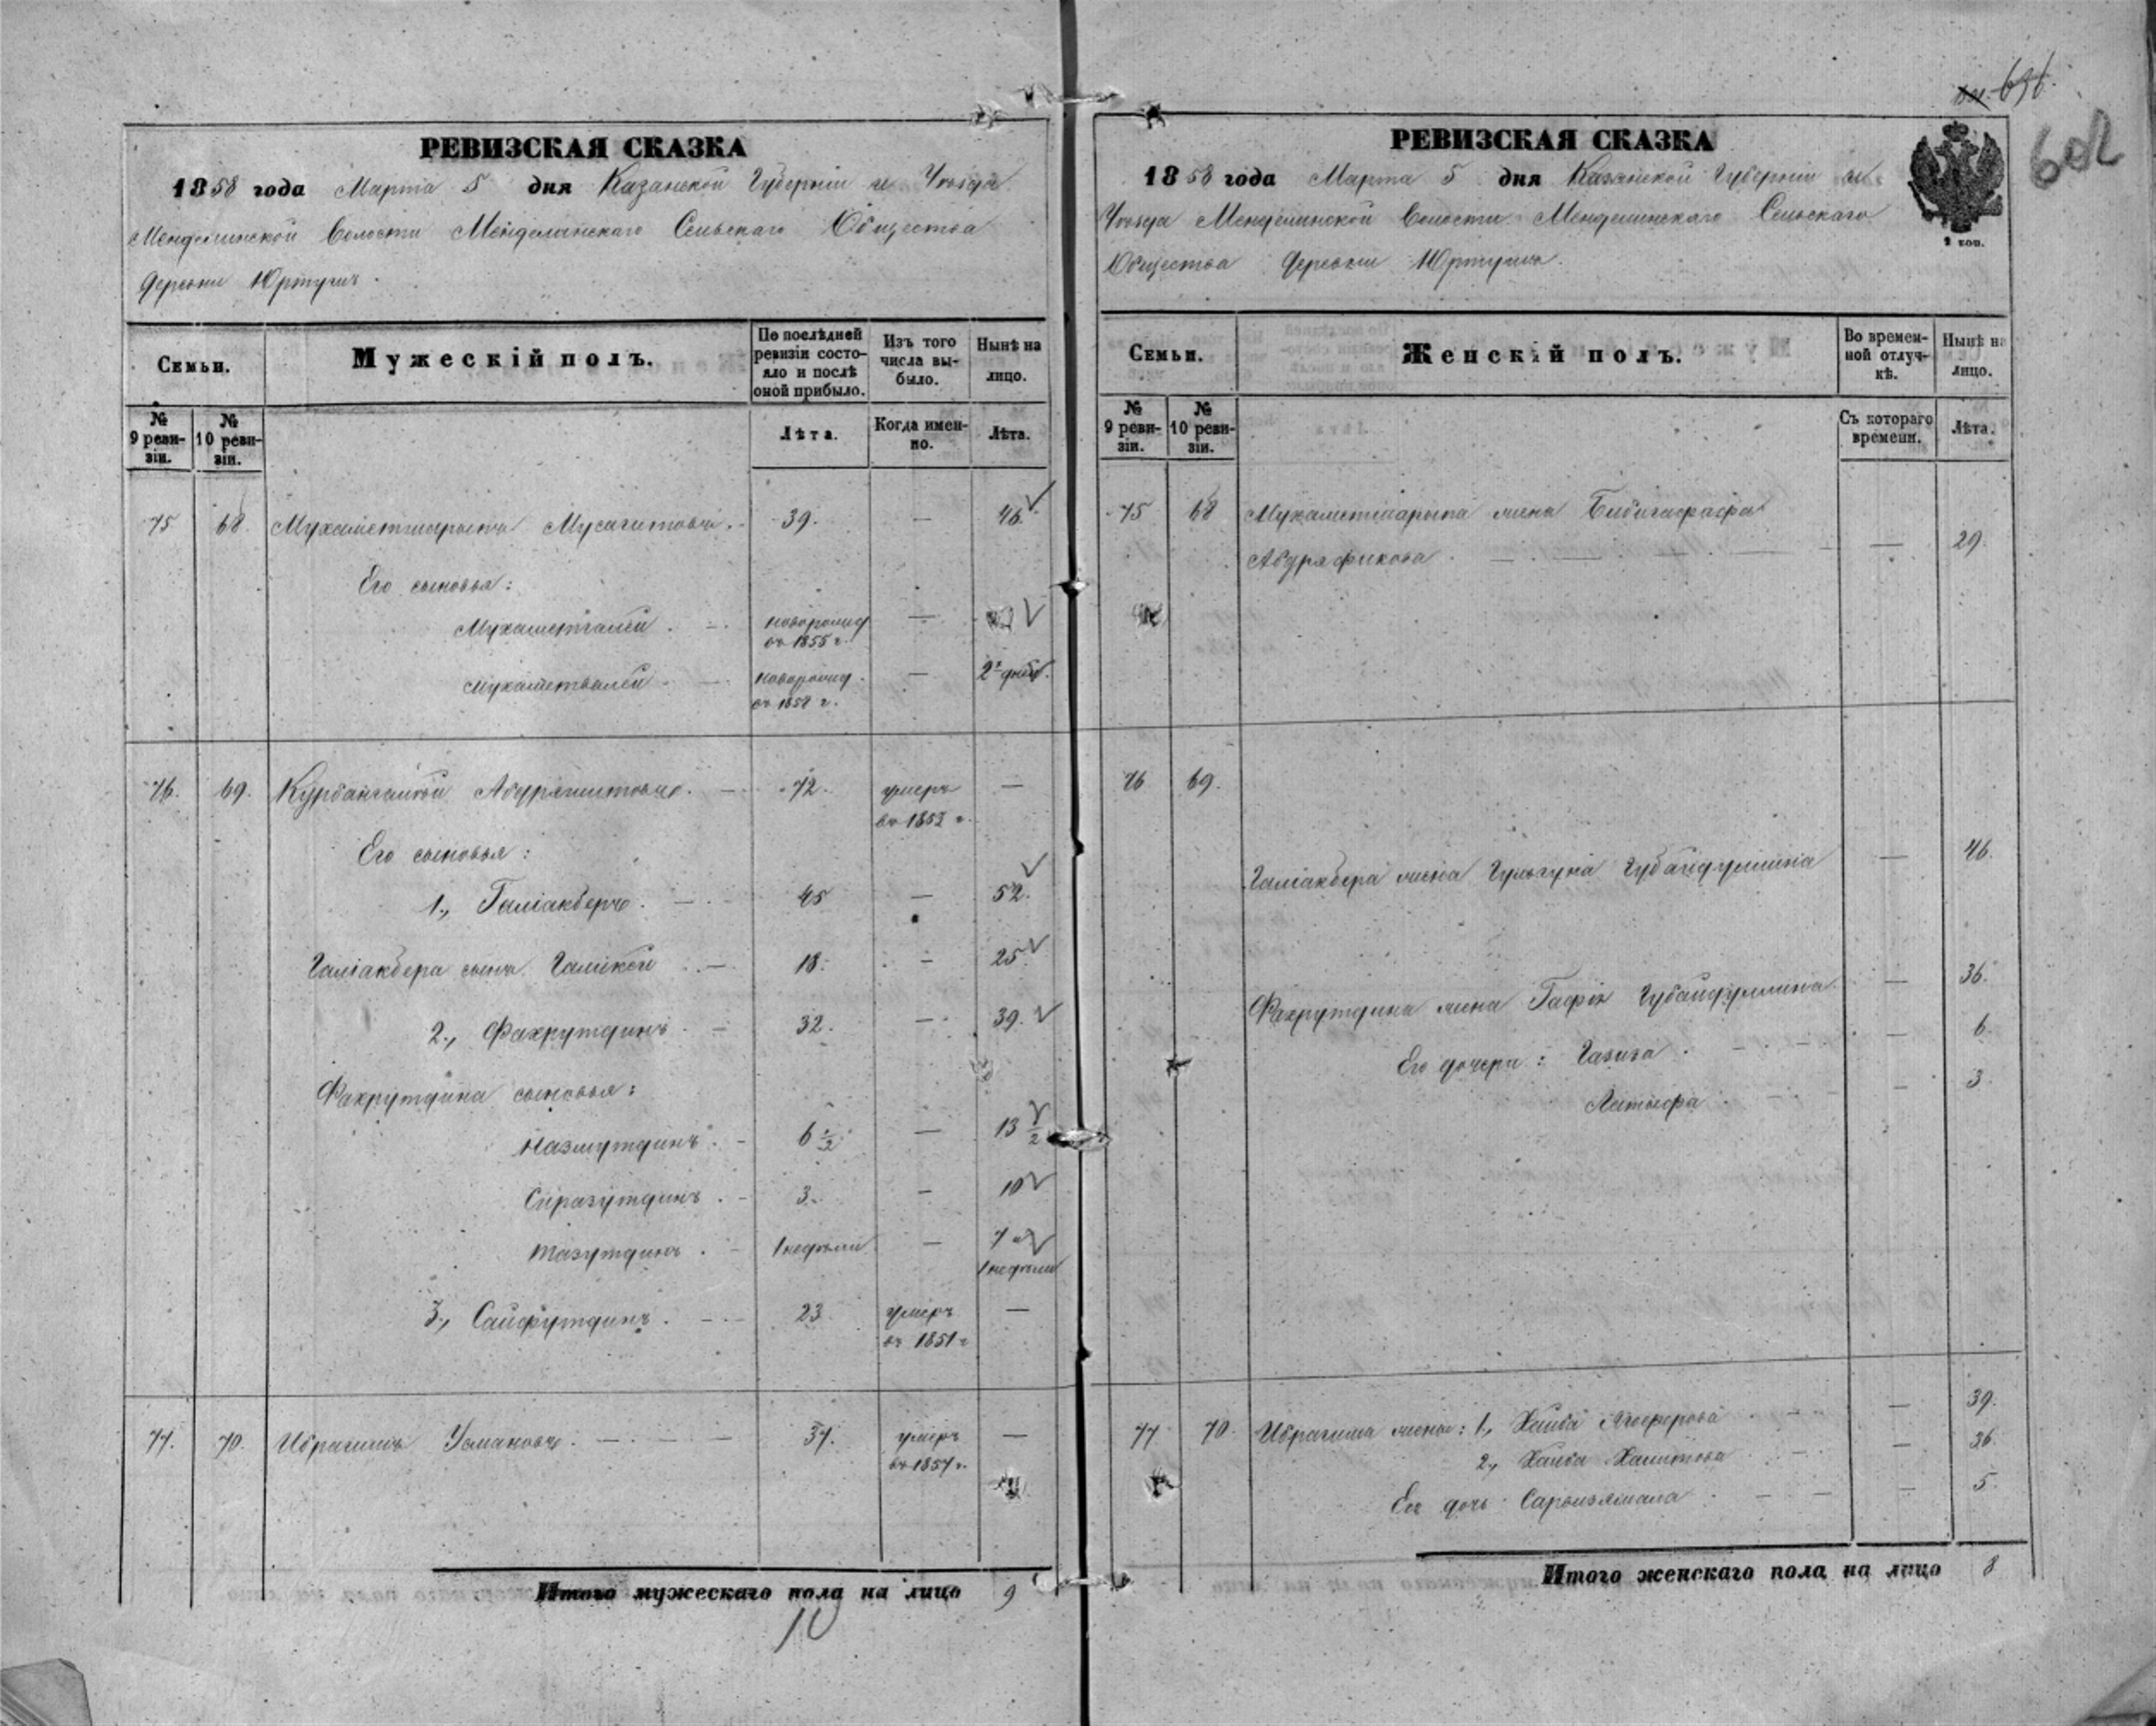 696.
602
РЕВИЗСКАЯ СКАЗКА
1858 года Марта 5 дня Казанской Губерніи и Уѣзда
Менделинской Волости Менделинскаго Сельскаго Общества
деревни Юртушъ.
Семьи.
Мужескій полъ.
По послѣдней ревизіи состояло и послѣ оной прибыло.
Изъ того числа выбыло.
Нынѣ на лицо.
№ 9 ревизіи.
№ 10 ревизіи.
Лѣта.
Когда именно.
Лѣта.
75 68. Мухаметшарыпъ Мусагитовъ. 39. — 46.
Его сыновья:
Мухаметгалей. новорожд въ 1855 г. —
Мухаметвалей. новорожд. въ 1858 г. — 2 дней.
76. 69. Курбангалей Абдряшитовъ. 72. умеръ въ 1853 г. —
Его сыновья:
1., Галіакберъ. 45 — 52.
Галіакбера сынъ Галикей 18. — 25
2., Фахрутдинъ. 32. — 39.
Фахрутдина сыновья:
Назмутдинъ. 6 1/2 — 13 1/2
Сиразутдинъ. 3. — 10
Тазутдинъ. 1 недѣли — 7 и 1 недѣли
3., Сайфутдинъ. 23 умеръ въ 1851 г —
77. 70. Ибрагимъ Усмановъ. 37. умеръ въ 1857 г. —
Итого мужескаго пола на лицо 9
10
РЕВИЗСКАЯ СКАЗКА
1858 года Марта 5 дня Казанской Губерніи и
Уѣзда Менделинской Волости Менделинскаго Сельскаго
Общества деревни Юртушъ.
2 коп.
Семьи.
Женскій полъ.
Во временной отлучкѣ.
Нынѣ на лицо.
№ 9 ревизіи.
№ 10 ревизіи.
Съ котораго времени.
Лѣта.
75 68 Мухаметшарыпа жена Бибигафифа
Абдряфикова. — 29.
76 69.
Галіакбера жена Гульгуна Губайдуллина — 46.
Фахрутдина жена Гафія Губайдуллина — 36.
Его дочери: Газиза. — 6.
Латыфа. — 3
77 70. Ибрагима жены: 1., Хаиба — 39.
2., Хаиба Хамитова — 36
Его дочь Сарвизямала — 5.
Итого женскаго пола на лицо 8